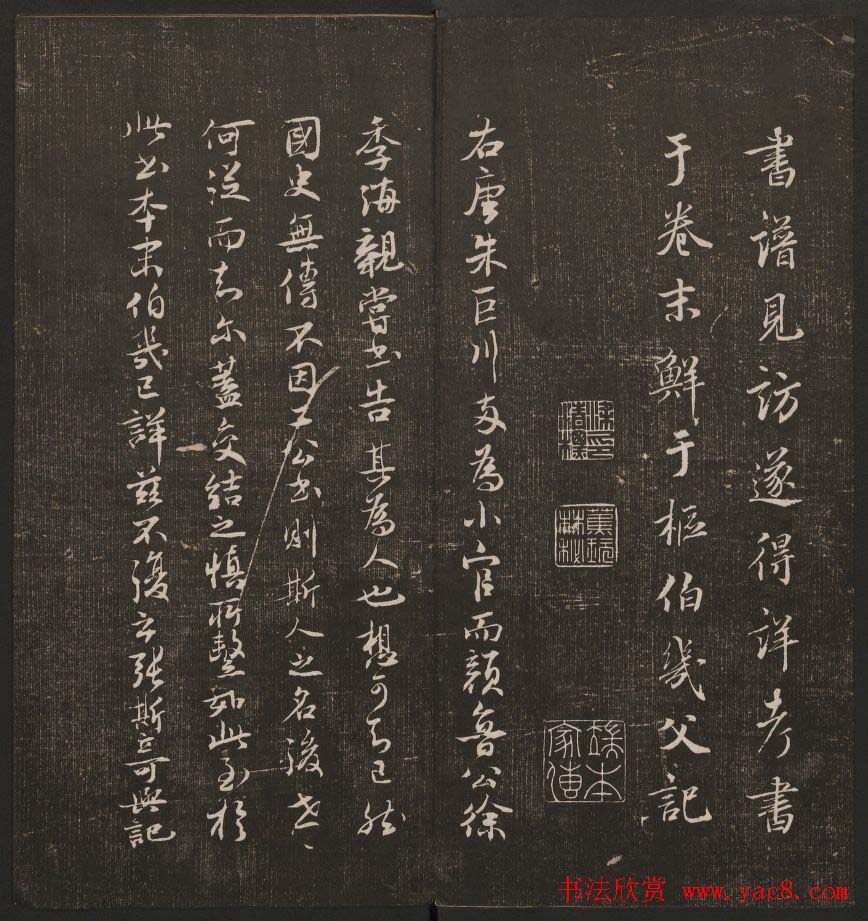 書譜見訪遂得詳考書
于卷末鮮于樞伯幾父記
右唐朱巨川為小官而顏魯公徐
季海親嘗書告其為人也想可知已然
國史無傳不因二公書則斯人之名後世
何從而知尔蓋交結之慎所繫如此至於
此書本末伯幾已詳茲不復云張斯立可與記
书法欣赏 www.yac8.com